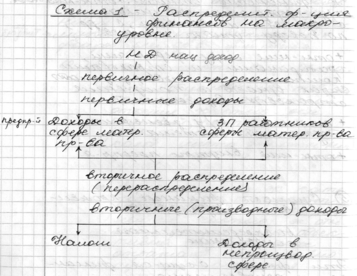 Схема 1 - Распределит. ф-ция
финансов на макро-
уровне.
НД нац доход.
первичное распределение
первичные доходы
предпр-й Доходы в ЗП работников
сфере матер. сферы матер пр-ва
пр-ва
вторичное распределение
(перераспределение)
вторичные (производные) доходы
Налоги Доходы в
непроизвод
сфере